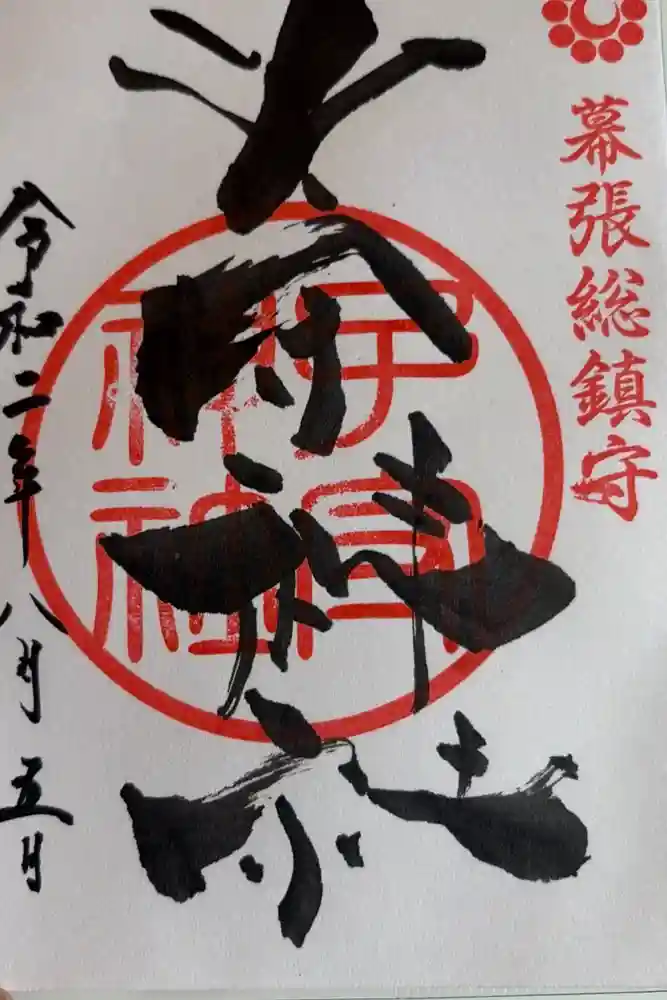 幕張総鎮守
子守神社
子守
神社
令和二年八月五日